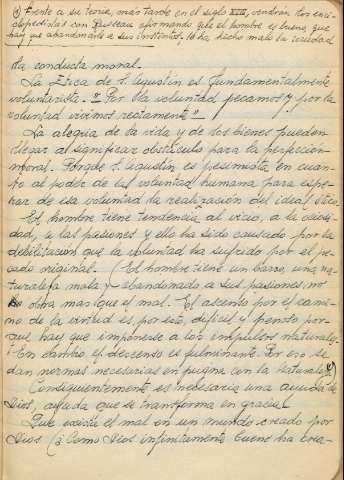 (*) Frente a su teoría, más tarde en el siglo XVIII, vendrán los enci-
clopedistas con Rousseau afirmando que el hombre es bueno, que
hay que abandonarle a sus instintos. Le ha hecho malo la sociedad
la conducta moral.
La Ética de S. Agustín es fundamentalmente
voluntarista. "Por la voluntad pecamos y por la
voluntad vivimos rectamente"
La alegría de la vida y de los bienes pueden
llegar a significar obstáculo para la perfección
moral. Porque S. Agustín es pesimista en cuan-
to al poder de la voluntad humana para espe-
rar de esa voluntad la realización del ideal ético.
El hombre tiene tendencia al vicio, a la ociosi-
dad, a las pasiones y ello ha sido causado por la
debilitación que la voluntad ha sufrido por el pe-
cado original. (El hombre tiene un barro, una na-
turaleza mala y abandonado a sus pasiones no
obra mas que el mal. El ascenso por el cami-
no de la virtud es por esto, dificil y penoso por-
que hay que imponerse a los impulsos naturales.
En cambio el descenso es fulminante. Por eso se
dan normas necesarias en pugna con la naturaleza (*)
Consiguientemente es necesaria una ayuda de
Dios, ayuda que se transforma en gracia.
Que exista el mal en un mundo creado por
Dios (¿Como Dios infinitamente bueno ha crea-